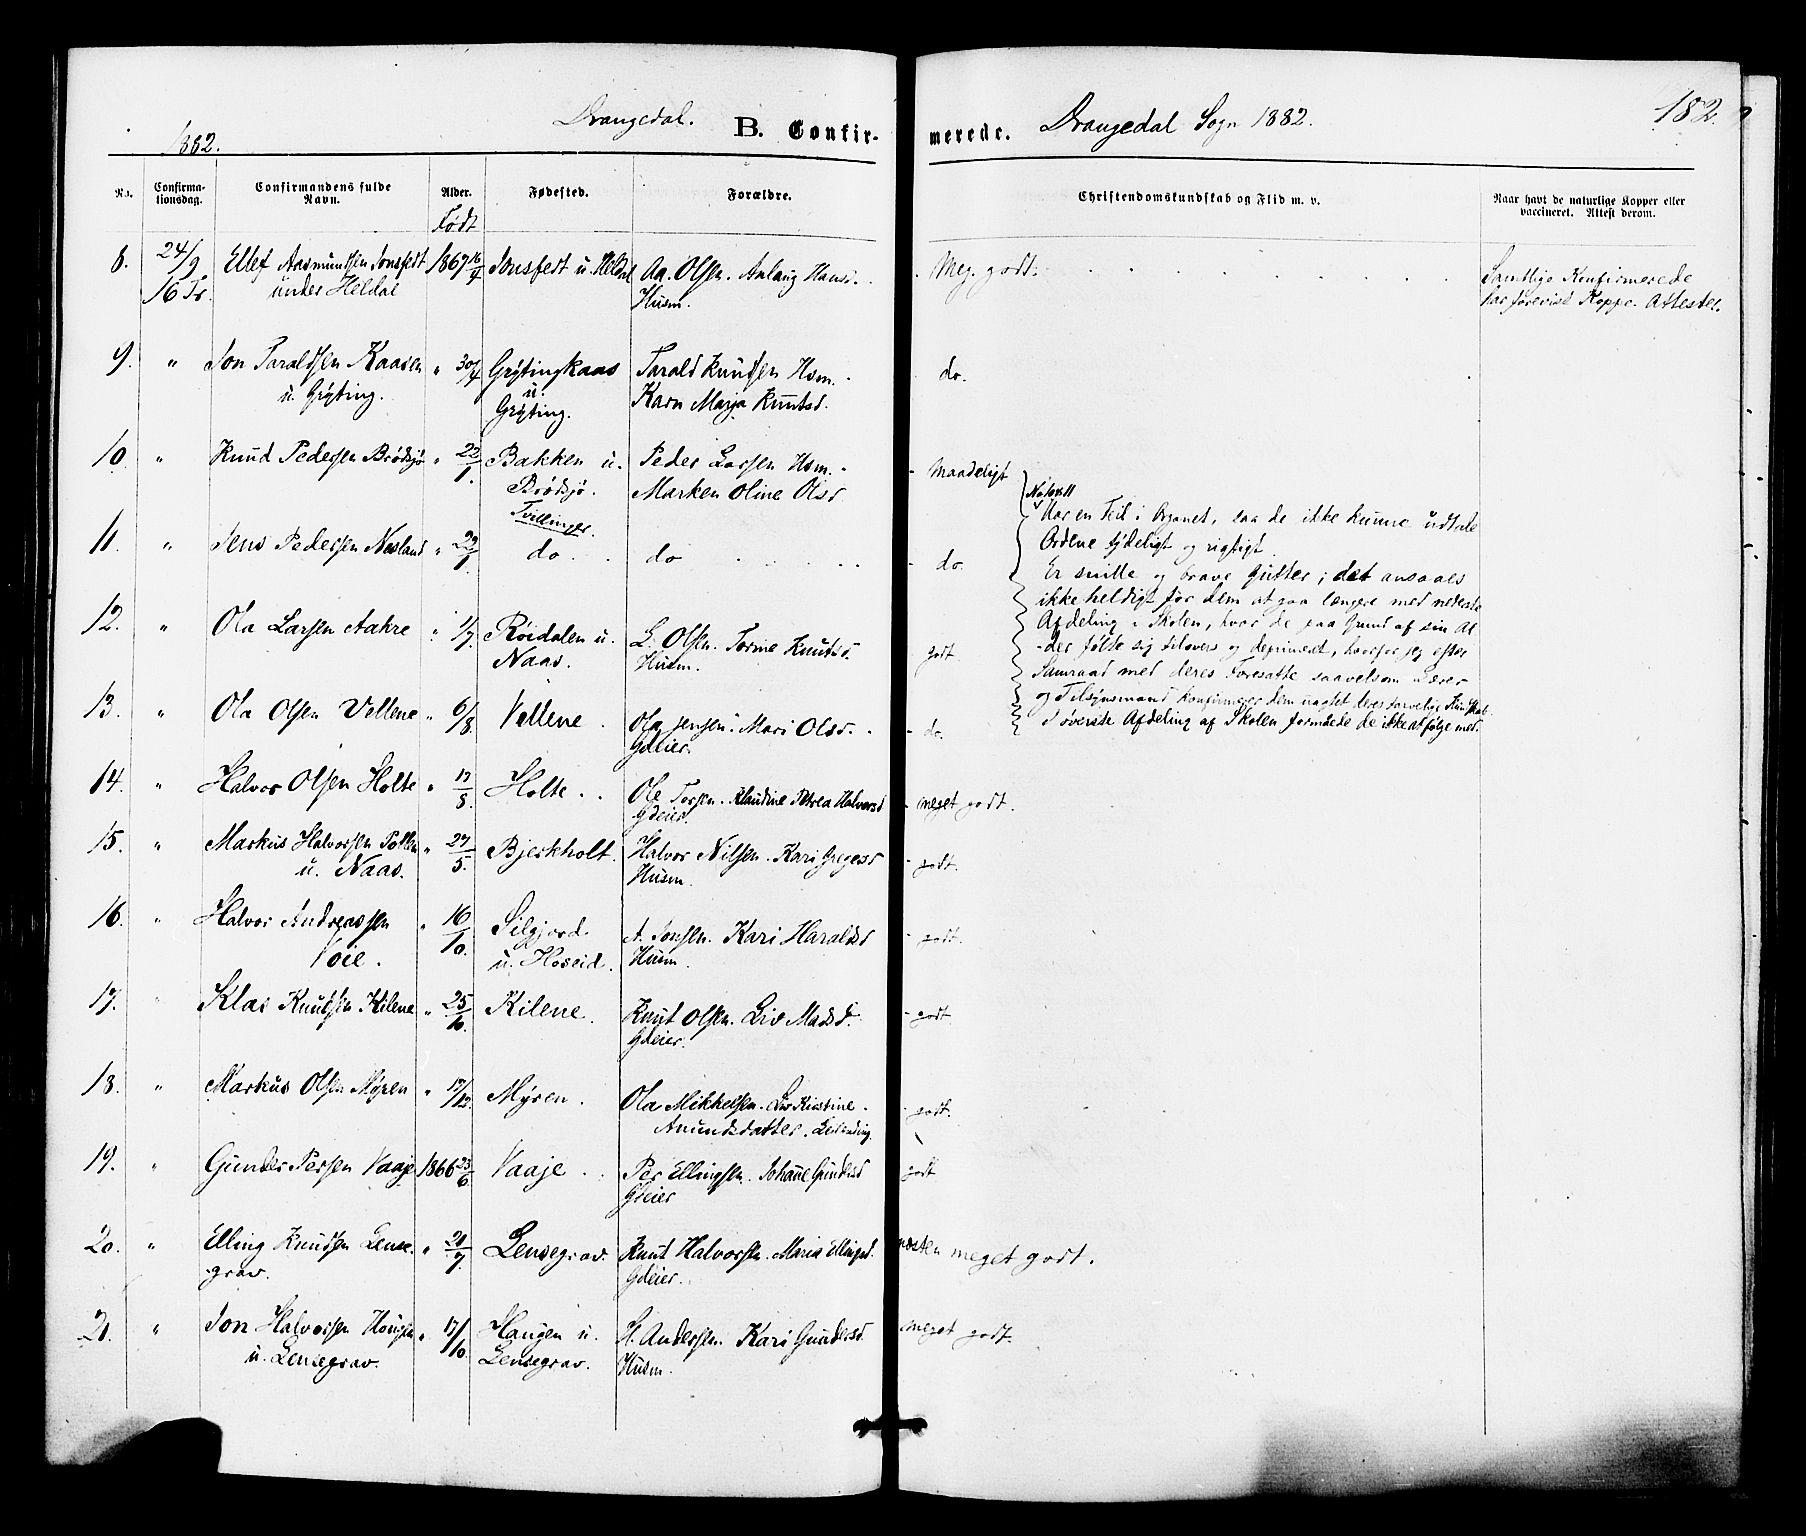 1882.
Drangedal.
B. Confir-
merede.
Drangedal Sogn 1882.
182.
No.
Confirma-
tionsdag.
Confirmandens fulde
Navn.
Alder.
Født
Fødested.
Forældre.
Christendomskundskab og Flid m. v.
Naar havt de naturlige Kopper eller
vaccineret. Attest derom.
8. 24/9 Ellef Aasmundsen Jonsfedt 1867 16/4 Jonsfedt u. Heldal Aa. Olsen. Aslaug Hansd. Meg. godt.
16 Tr. under Heldal Husm.
Samtlige Konfirmerede
har forevist Koppe. Attester.
9. " Jon Taraldsen Kaasen " 30/4 Grytingkaas Tarald Knudsen Hsm. do.
u. Gryting. u. Gryting. Karn Marja Knutsd.
10. " Knud Pedersen Brødsjø " 22/1. Bakken u. Peder Larsen Hsm. Maadeligt
Brødsjø. Marken Oline Olsd
Tvillinger.
11. " Jens Pedersen Nesland " 22/1 do do do.
Har en Feil i Organet, saa de ikke kunne udtale
Ordene tydeligt og rigtigt.
Er snille og brave Gutter; det ansaaes
ikke heldigt for dem at gaa længere med nederste
Afdeling i Skolen, hvor de paa Grund af sin Al-
der følte sig tilovers og deprimeret, hvorfor jeg efter
Samraad med deres Foresatte saavelsom Lærer
og Tilsynsmand konfirmerer dem uagtet deres tarvelige Kundskab.
I øverste Afdeling af Skolen formaade de ikke at følge med.
12. " Ola Larsen Aakre " 1/7. Røidalen u. L. Olsen. Torine Knutsd. godt
Naas. Husm.
13. " Ola Olsen Vellene " 6/8. Vellene. Ola Jensen. Mari Olsd. do.
Gdeier.
14. " Halvor Olsen Holte " 17/8. Holte. Ole Torsen. Klaudine Petrea Halvorsd meget godt.
Gdeier.
15. " Markus Halvorsen Pollen " 27/5. Bjerkholt. Halvor Nilsen. Kari Gregersd godt.
u. Naas. Husm.
16. " Halvor Andreassen " 16/10. Silgjord. A. Jonsen. Kari Haraldsd godt.
Voie. u. Hoseid. Husm.
17. " Klas Knudsen Kilene " 25/10. Kilene. Knut Olsen. Liv Madsd. godt
Gdeier.
18. " Markus Olsen Myren " 17/12. Myren. Ola Mikkelsen. Liv Kirstine godt.
Anundsdatter. Leilending.
19. " Gunder Persen Vaaje 1866 23/6. Vaaje Per Ellingsen. Johanne Gundersd godt
Gdeier
20. " Elling Knudsen Lense- " 21/7. Lensegrav. Knut Halvorsen. Maria Ellingsd. næsten meget godt.
grav. Gdeier.
21. " Jon Halvorsen Haugen " 17/10. Haugen u. H. Andersen. Kari Gundersd. meget godt.
u. Lensegrav. Lensegrav. Husm.